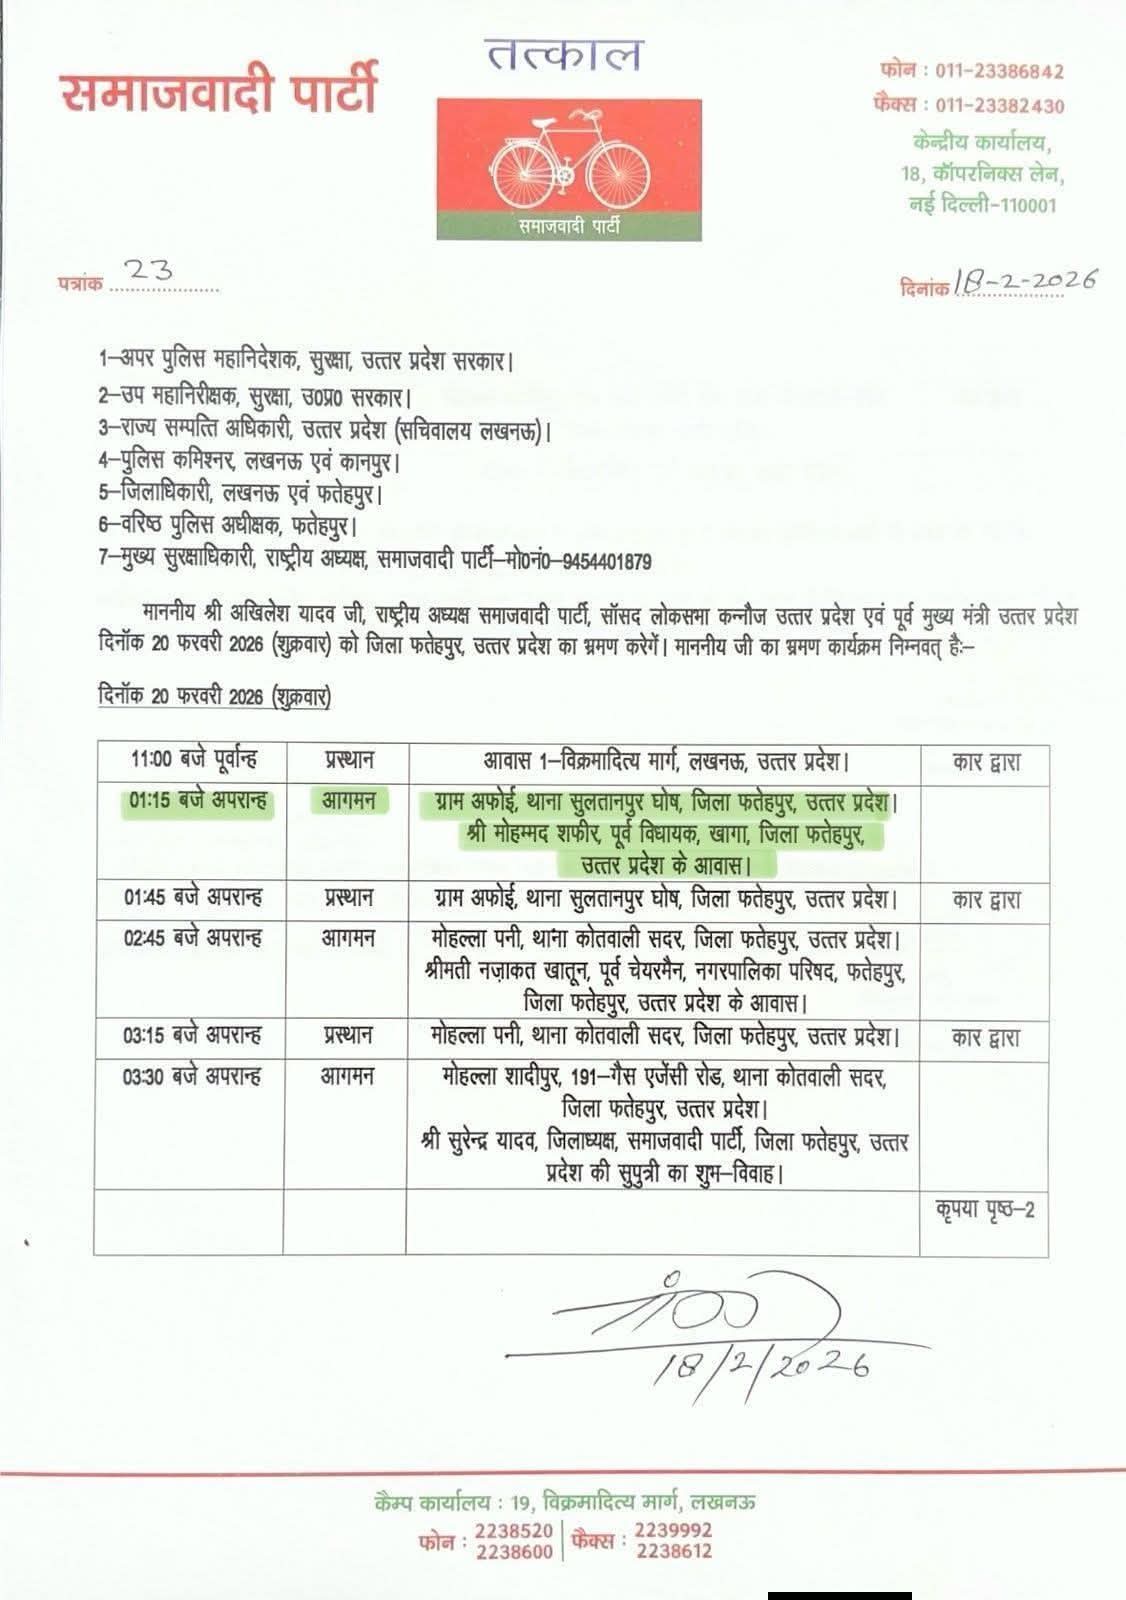 तत्काल
समाजवादी पार्टी
समाजवादी पार्टी
फोन : 011-23386842
फैक्स : 011-23382430
केन्द्रीय कार्यालय,
18, कॉपरनिक्स लेन,
नई दिल्ली-110001
पत्रांक 23
दिनांक 18-2-2026
1–अपर पुलिस महानिदेशक, सुरक्षा, उत्तर प्रदेश सरकार।
2–उप महानिरीक्षक, सुरक्षा, उ0प्र0 सरकार।
3–राज्य सम्पत्ति अधिकारी, उत्तर प्रदेश (सचिवालय लखनऊ)।
4–पुलिस कमिश्नर, लखनऊ एवं कानपुर।
5–जिलाधिकारी, लखनऊ एवं फतेहपुर।
6–वरिष्ठ पुलिस अधीक्षक, फतेहपुर।
7–मुख्य सुरक्षाधिकारी, राष्ट्रीय अध्यक्ष, समाजवादी पार्टी–मो0नं0–9454401879
माननीय श्री अखिलेश यादव जी, राष्ट्रीय अध्यक्ष समाजवादी पार्टी, सॉसद लोकसभा कन्नौज उत्तर प्रदेश एवं पूर्व मुख्य मंत्री उत्तर प्रदेश
दिनॉक 20 फरवरी 2026 (शुक्रवार) को जिला फतेहपुर, उत्तर प्रदेश का भ्रमण करेगें। माननीय जी का भ्रमण कार्यक्रम निम्नवत् है:–
दिनॉक 20 फरवरी 2026 (शुक्रवार)
11:00 बजे पूर्वान्ह प्रस्थान आवास 1–विक्रमादित्य मार्ग, लखनऊ, उत्तर प्रदेश। कार द्वारा
01:15 बजे अपरान्ह आगमन ग्राम अफोई, थाना सुलतानपुर घोष, जिला फतेहपुर, उत्तर प्रदेश।
श्री मोहम्मद शफीर, पूर्व विधायक, खागा, जिला फतेहपुर,
उत्तर प्रदेश के आवास।
01:45 बजे अपरान्ह प्रस्थान ग्राम अफोई, थाना सुलतानपुर घोष, जिला फतेहपुर, उत्तर प्रदेश। कार द्वारा
02:45 बजे अपरान्ह आगमन मोहल्ला पनी, थाना कोतवाली सदर, जिला फतेहपुर, उत्तर प्रदेश।
श्रीमती नज़ाकत खातून, पूर्व चेयरमैन, नगरपालिका परिषद, फतेहपुर,
जिला फतेहपुर, उत्तर प्रदेश के आवास।
03:15 बजे अपरान्ह प्रस्थान मोहल्ला पनी, थाना कोतवाली सदर, जिला फतेहपुर, उत्तर प्रदेश। कार द्वारा
03:30 बजे अपरान्ह आगमन मोहल्ला शादीपुर, 191–गैस एजेंसी रोड, थाना कोतवाली सदर,
जिला फतेहपुर, उत्तर प्रदेश।
श्री सुरेन्द्र यादव, जिलाध्यक्ष, समाजवादी पार्टी, जिला फतेहपुर, उत्तर
प्रदेश की सुपुत्री का शुभ–विवाह।
कृपया पृष्ठ–2
18/2/2026
कैम्प कार्यालय : 19, विक्रमादित्य मार्ग, लखनऊ
फोन : 2238520 फैक्स : 2239992
2238600 2238612